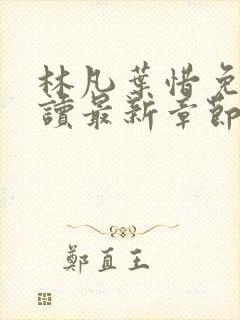 林凡葉惜免
讀最新章節
鄭直王